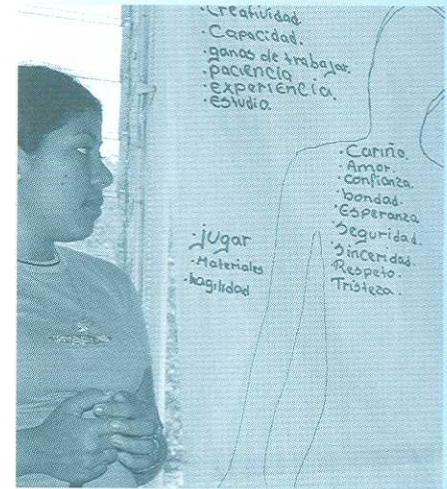 ·Creatividad.
·Capacidad.
·ganas de trabajar.
·paciencia
·experiencia.
·Estudio.
·Cariño.
·Amor.
·confianza.
·bondad.
·Esperanza
·Seguridad.
·Sinceridad.
Respeto.
Tristeza.
·jugar
·Materiales
·hagilidad